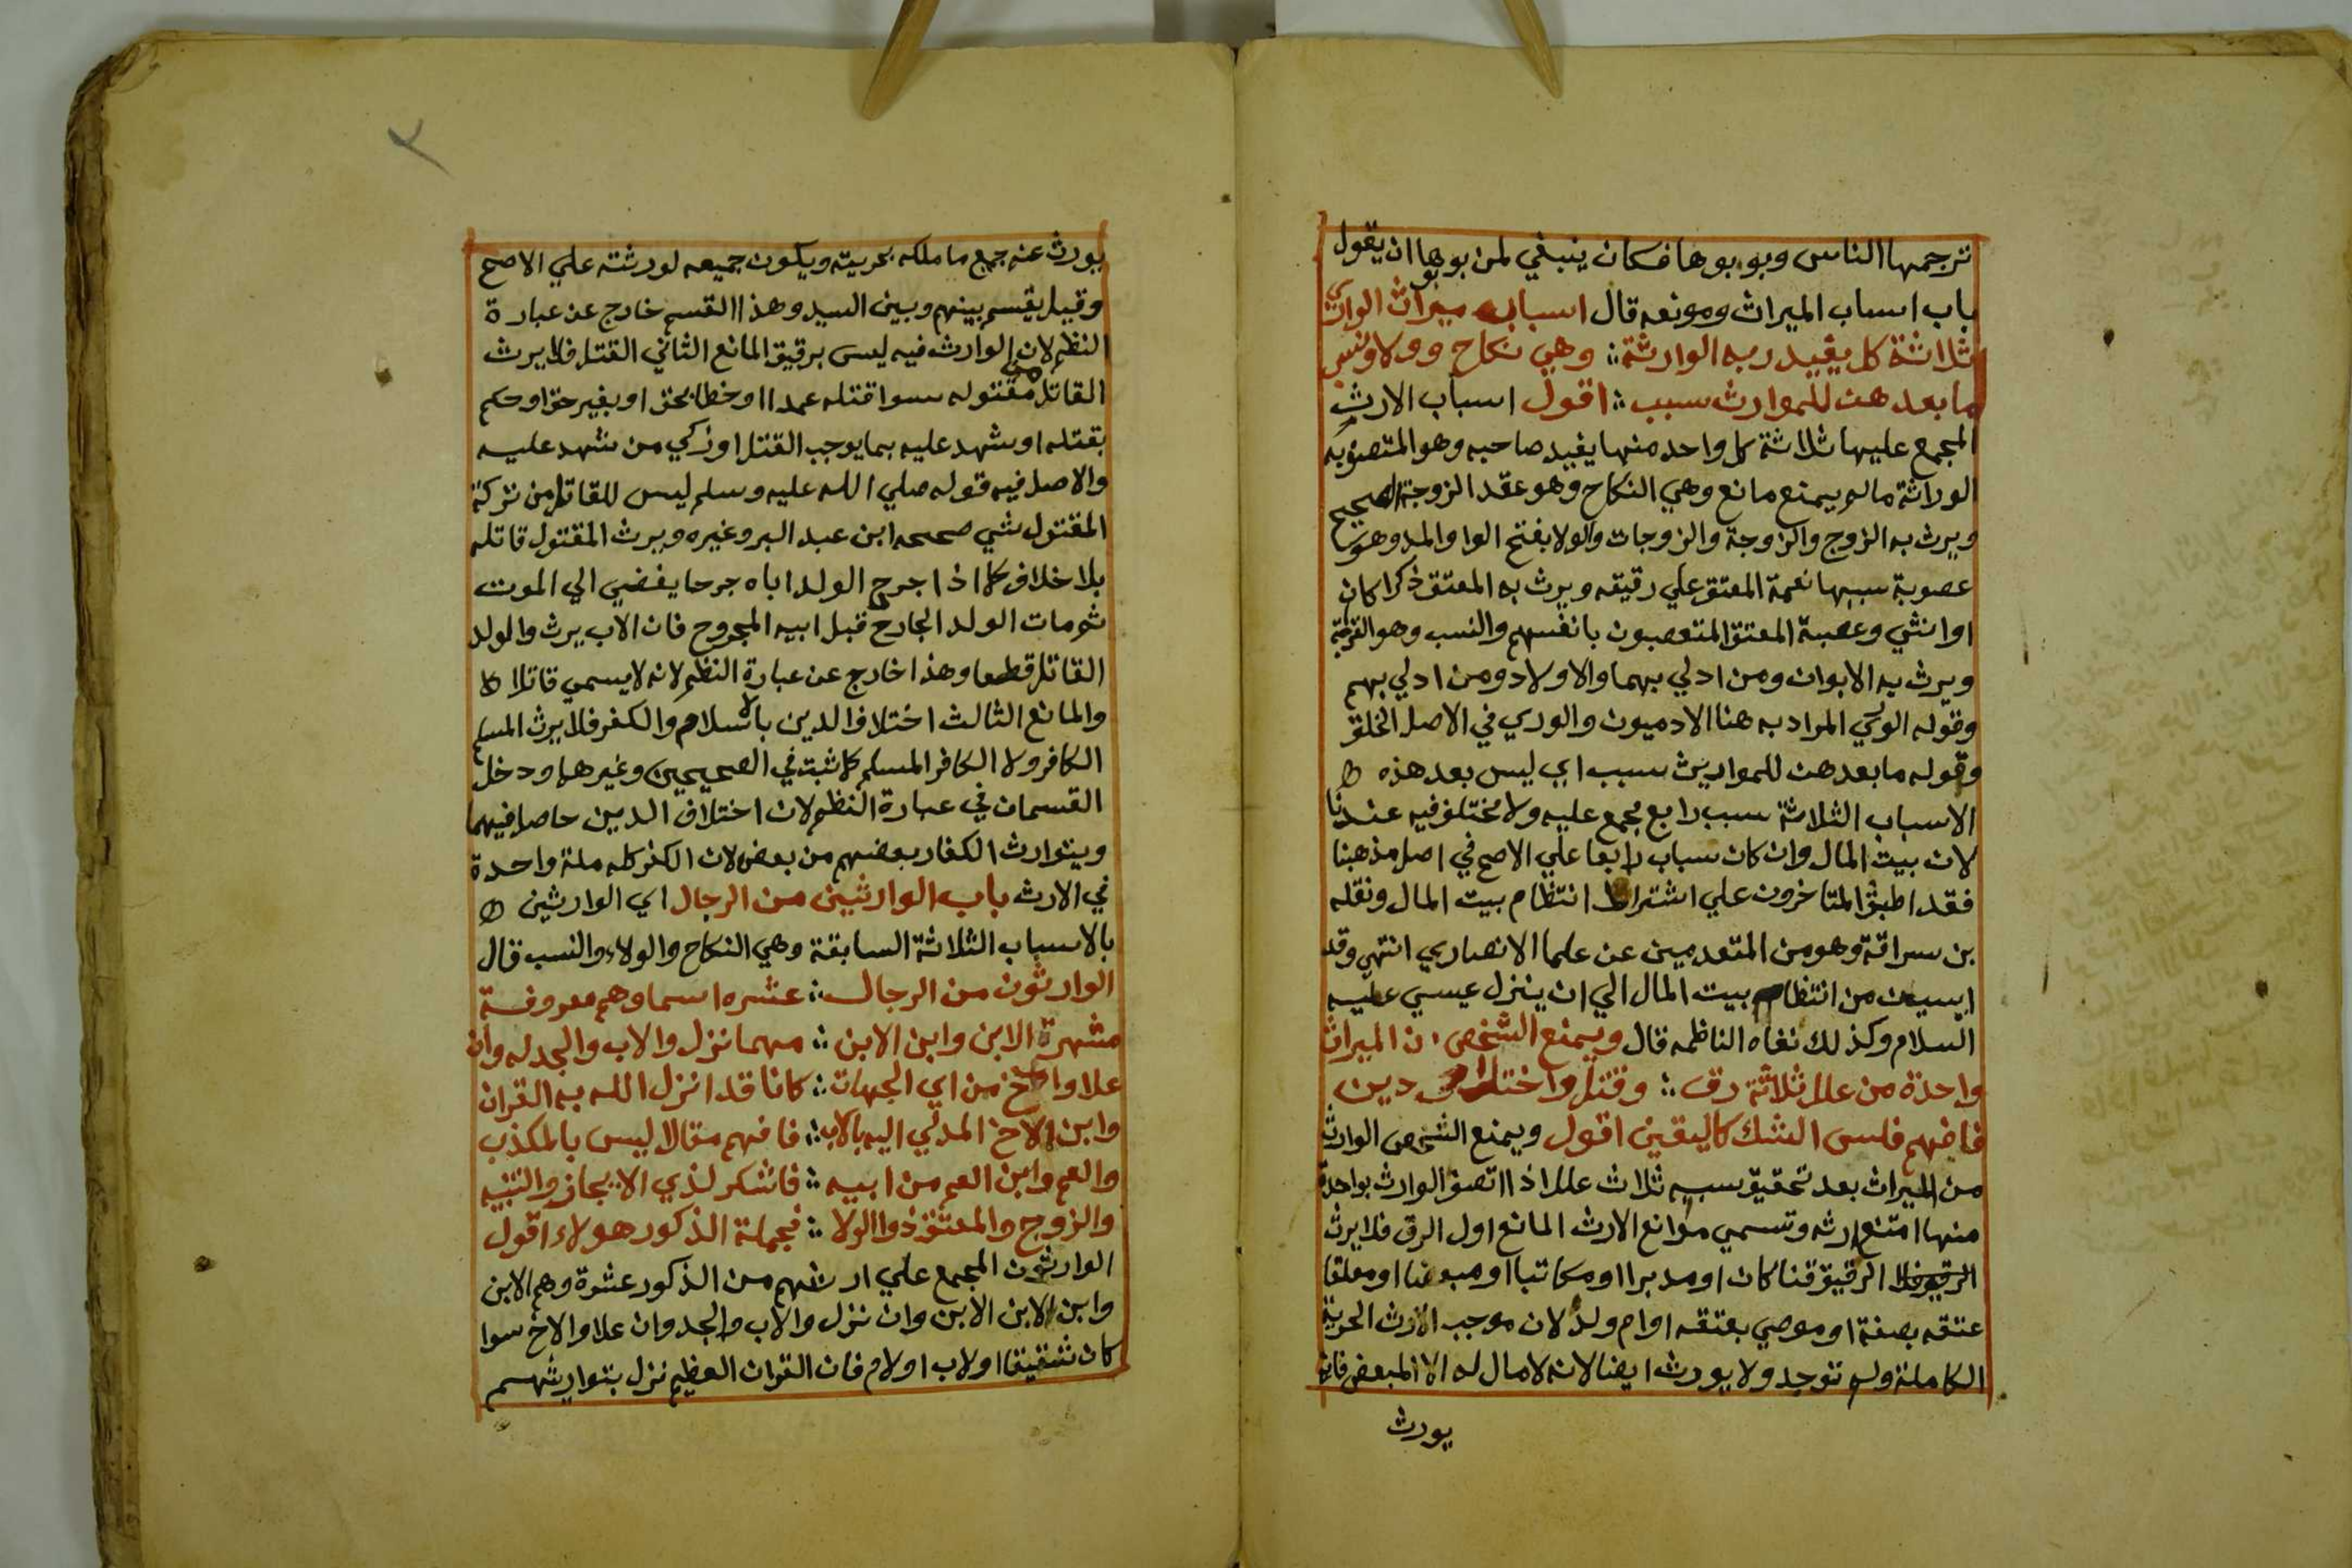 ترجمها الناس وبوبوها فكان ينبغي لمن بوبها ان يقول
باب اسباب الميراث ومونعه قال اسباب ميراث الوري
ثلاثة كل يفيد ربه الوارثة وهي نكاح وولا ونسب
ما بعد هن للموارث سبب اقول اسباب الارث
المجمع عليها ثلاثة كل واحد منها يفيد صاحبه وهو المتصف به
الوراثة ما لم يمنع مانع وهي النكاح وهو عقد الزوجة الصحيح
ويرث به الزوج والزوجة والزوجات والولا بفتح الواو والمد وهو
عصوبة سببها نعمة المعتق علي رقيقه ويرث به المعتق ذكرا كان
او انثي وعصبة المعتق المتعصبون بانفسهم والنسب وهو القرابة
ويرث به الابوان ومن ادلي بهما والاولاد ومن ادلي بهم
وقوله الوري المراد به هنا الادميون والوري في الاصل الخلق
وقوله ما بعد هن للمواريث سبب اي ليس بعد هذه
الاسباب الثلاثة سبب رابع مجمع عليه ولا مختلف فيه عندنا
لان بيت المال وان كان سباب رابعا علي الاصح في اصل مذهبنا
فقد اطبق المتاخرون علي اشتراط انتظام بيت المال ونقله
بن سراقة وهو من المتقدمين عن علما الانصاري انتهي وقد
ايسين من انتظام بيت المال الي ان ينزل عيسي عليه
السلام وكذلك نفاه الناظمه قال ويمنع الشخص من الميراث
واحدة من علل ثلاثة رق وقتل واختلاف دين
فافهم فلسن الشك كاليقين اقول ويمنع الشخص الوارث
من الميراث بعد تحقيق سببه ثلاث علل اذا اتصف الوارث بواحدة
منها امتنع ارثه وتسمي موانع الارث المانع اول الرق فلا يرث
الرقيق قنا كان او مدبرا او مكاتبا او مبعضا او معلقا
عتقه بصفة او موصي بعتقه او ام ولد لان موجب الارث الحرية
الكاملة ولم توجد ولا يورث ايضا لانه لا مال له الا المبعض فانه
يورث
يورث عنه جميع ما ملكه بحريته ويكون جميعه لورثته علي الاصح
وقيل يقسم بينهم وبين السيد وهذا القسم خارج عن عبارة
النظم لان الوارث فيه ليس برقيق المانع الثاني القتل فلا يرث
القاتل من مقتوله سوا قتله عمدا او خطا بحق او بغير حق او حكم
بقتله او شهد عليه بما يوجب القتل او زكي من شهد عليه
والاصل فيه قوله صلي الله عليه وسلم ليس للقاتل من تركة
المقتول شي صححه ابن عبد البر وغيره ويرث المقتول قاتله
بلا خلاف كما اذا جرح الولد اباه جرحا يفضي الي الموت
ثم مات الولد الجارح قبل ابيه المجروح فان الاب يرث والولد
القاتل قطعا وهذا خارج عن عبارة النظم لانه لا يسمي قاتلا
والمانع الثالث اختلاف الدين بالاسلام والكفر فلا يرث المسلم
الكافر ولا الكافر المسلم كما ثبت في الصحيحين وغيرهما ودخل
القسمان في عبارة النظم لان اختلاف الدين حاصل فيهما
ويتوارث الكفار بعضهم من بعض لان الكفر كله ملة واحدة
في الارث باب الوارثين من الرجال اي الوارثين
بالاسباب الثلاثة السابقة وهي النكاح والولاء والنسب قال
الوارثون من الرجال عشره اسماوهم معروفة
مشهرة الابن وابن الابن مهما نزل والاب والجد له وان
علا والاخ من اي الجهات كانا قد انزل الله به القران
وابن الاخ المدلي اليه بالاب فافهم مقالا ليس بالمكذب
والعم وابن العم من ابيه فاشكر لذي الايجاز والتنبيه
والزوج والمعتق ذوا الولا فجملة الذكور هولاء اقول
الوارثون المجمع علي ارثهم من الذكور عشرة وهم الابن
وابن الابن الابن وان نزل والاب والجد وان علا والاخ سوا
كان شقيقا او لاب او لام فان القران العظيم نزل بتوارثهم